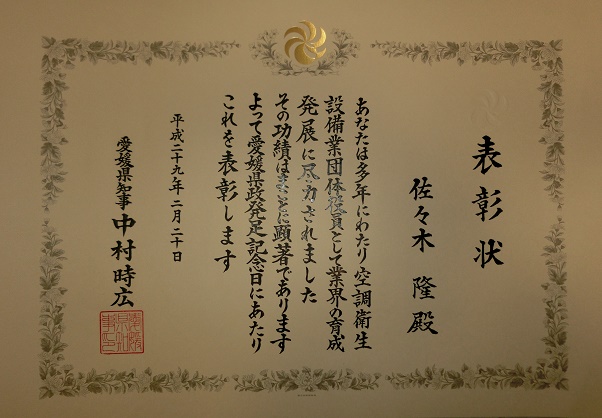 表彰状
佐々木 隆 殿
あなたは多年にわたり空調衛生
設備業団体役員として業界の育成
発展に尽力されました
その功績はまことに顕著であります
よって愛媛県政発足記念日にあたり
これを表彰します
平成二十九年二月二十日
愛媛県知事 中村時広
愛媛県知事印